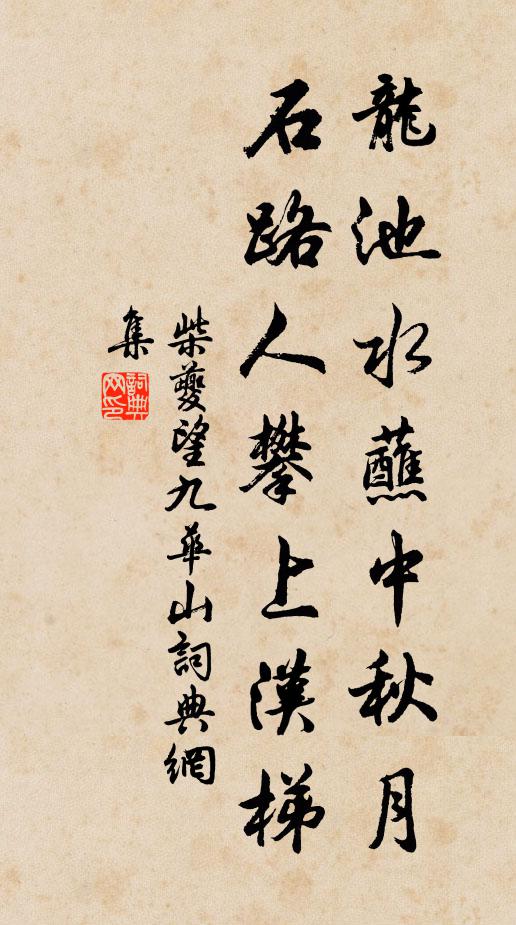 龍池水蘸中秋月
石路人攀上漢梯
柴夔望九華山詞典網
集
詞典
网印